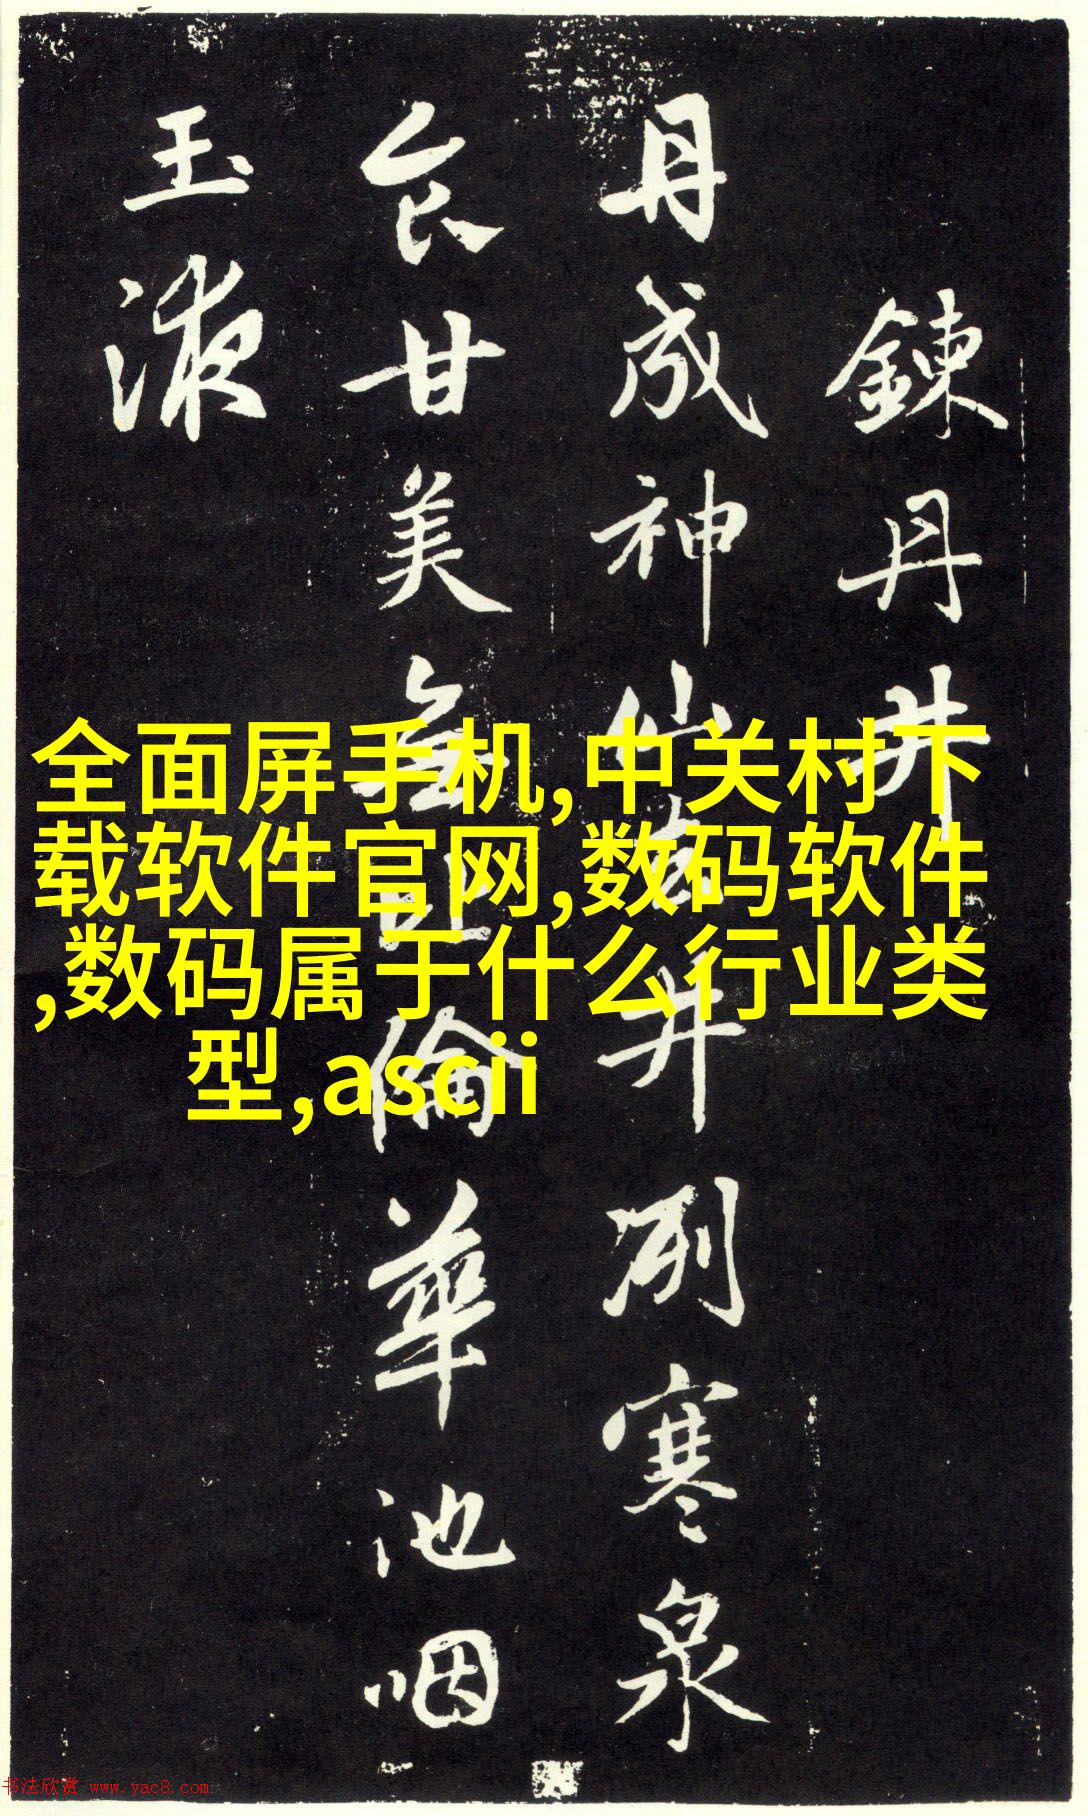 鍊丹井
丹成神仙去井冽寒泉
食甘美無比倫華池咽
玉液
全面屏手机,中关村下
载软件官网,数码软件
,数码属于什么行业类
型,ascii
书法欣赏 www.yac8.com